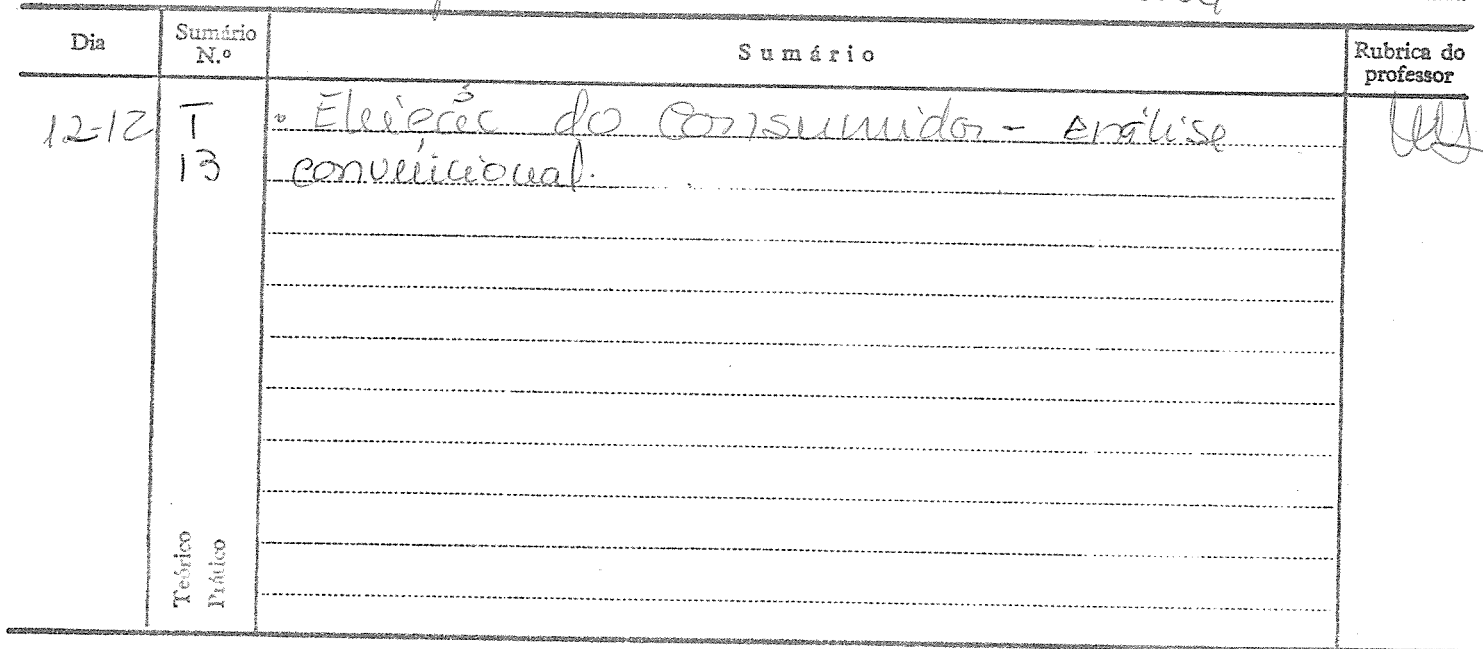 Dia
Sumário N.º
Sumário
Rubrica do professor
12-12
T
13
Eleição do consumidor - análise
convencional.
Teórico
Prático